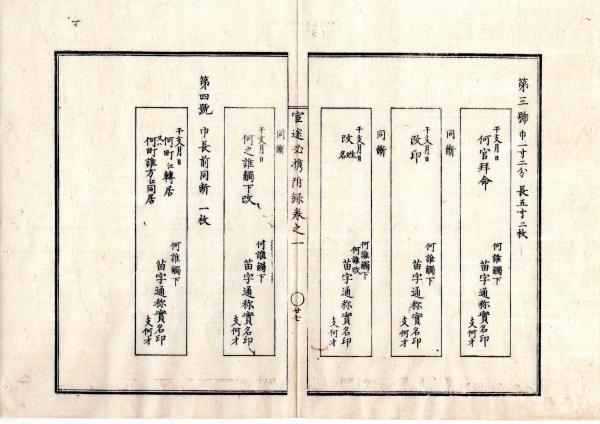 第三號 巾一寸二分 長五寸二枚
干支月日
何官拜命
何誰觸下
苗字通称實名印
支何才
同斷
干支月日
改印
何誰觸下
苗字通称實名印
支何才
同斷
干支月日
改姓名
何誰觸下
何誰改
苗字通称實名印
支何才
官途必携附録卷之一
廿七
同斷
干支月日
何之誰觸下改
何誰觸下
苗字通称實名印
支何才
第四號 巾長前同斷 一枚
干支月日
何町江轉居
又ハ
何町誰方江同居
何誰觸下
苗字通称實名印
支何才